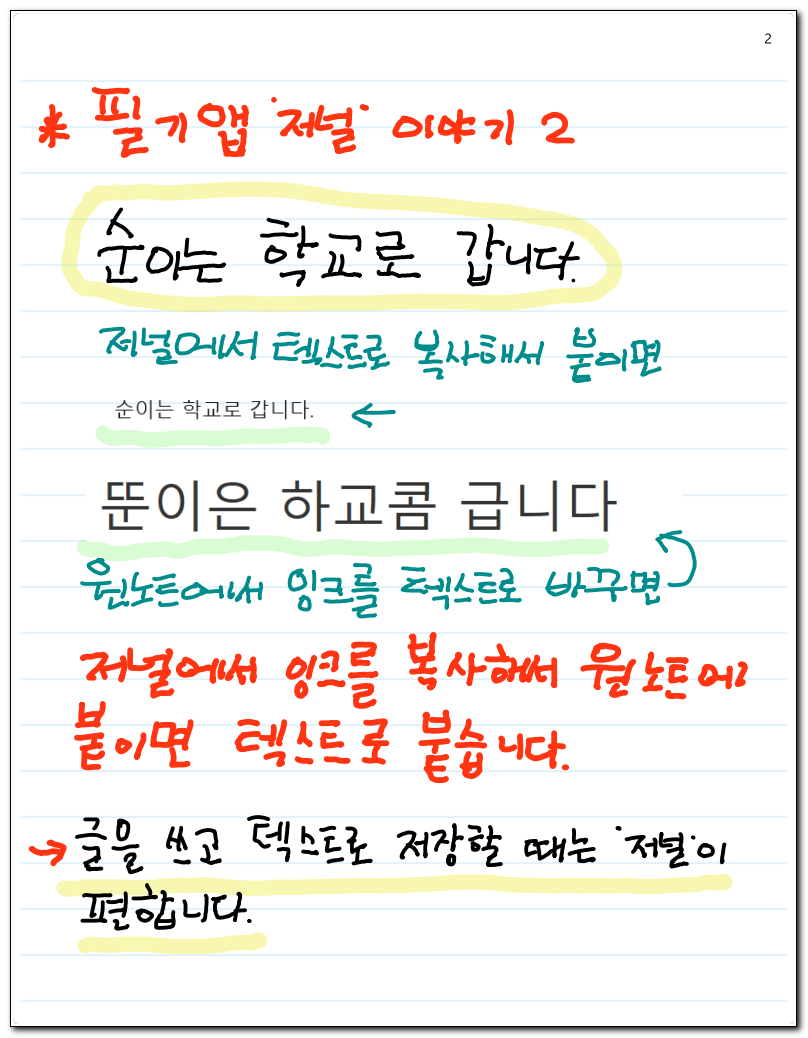 2
* 필기앱 '저널' 이야기 2
순이는 학교로 갑니다.
저널에서 텍스트로 복사해서 붙이면
순이는 학교로 갑니다. ←
뚠이은 하교콤 급니다
원노트에서 잉크를 텍스트로 바꾸면
저널에서 잉크를 복사해서 원노트에
붙이면 텍스트로 붙습니다.
→ 글을 쓰고 텍스트로 저장할 때는 '저널'이
편합니다.